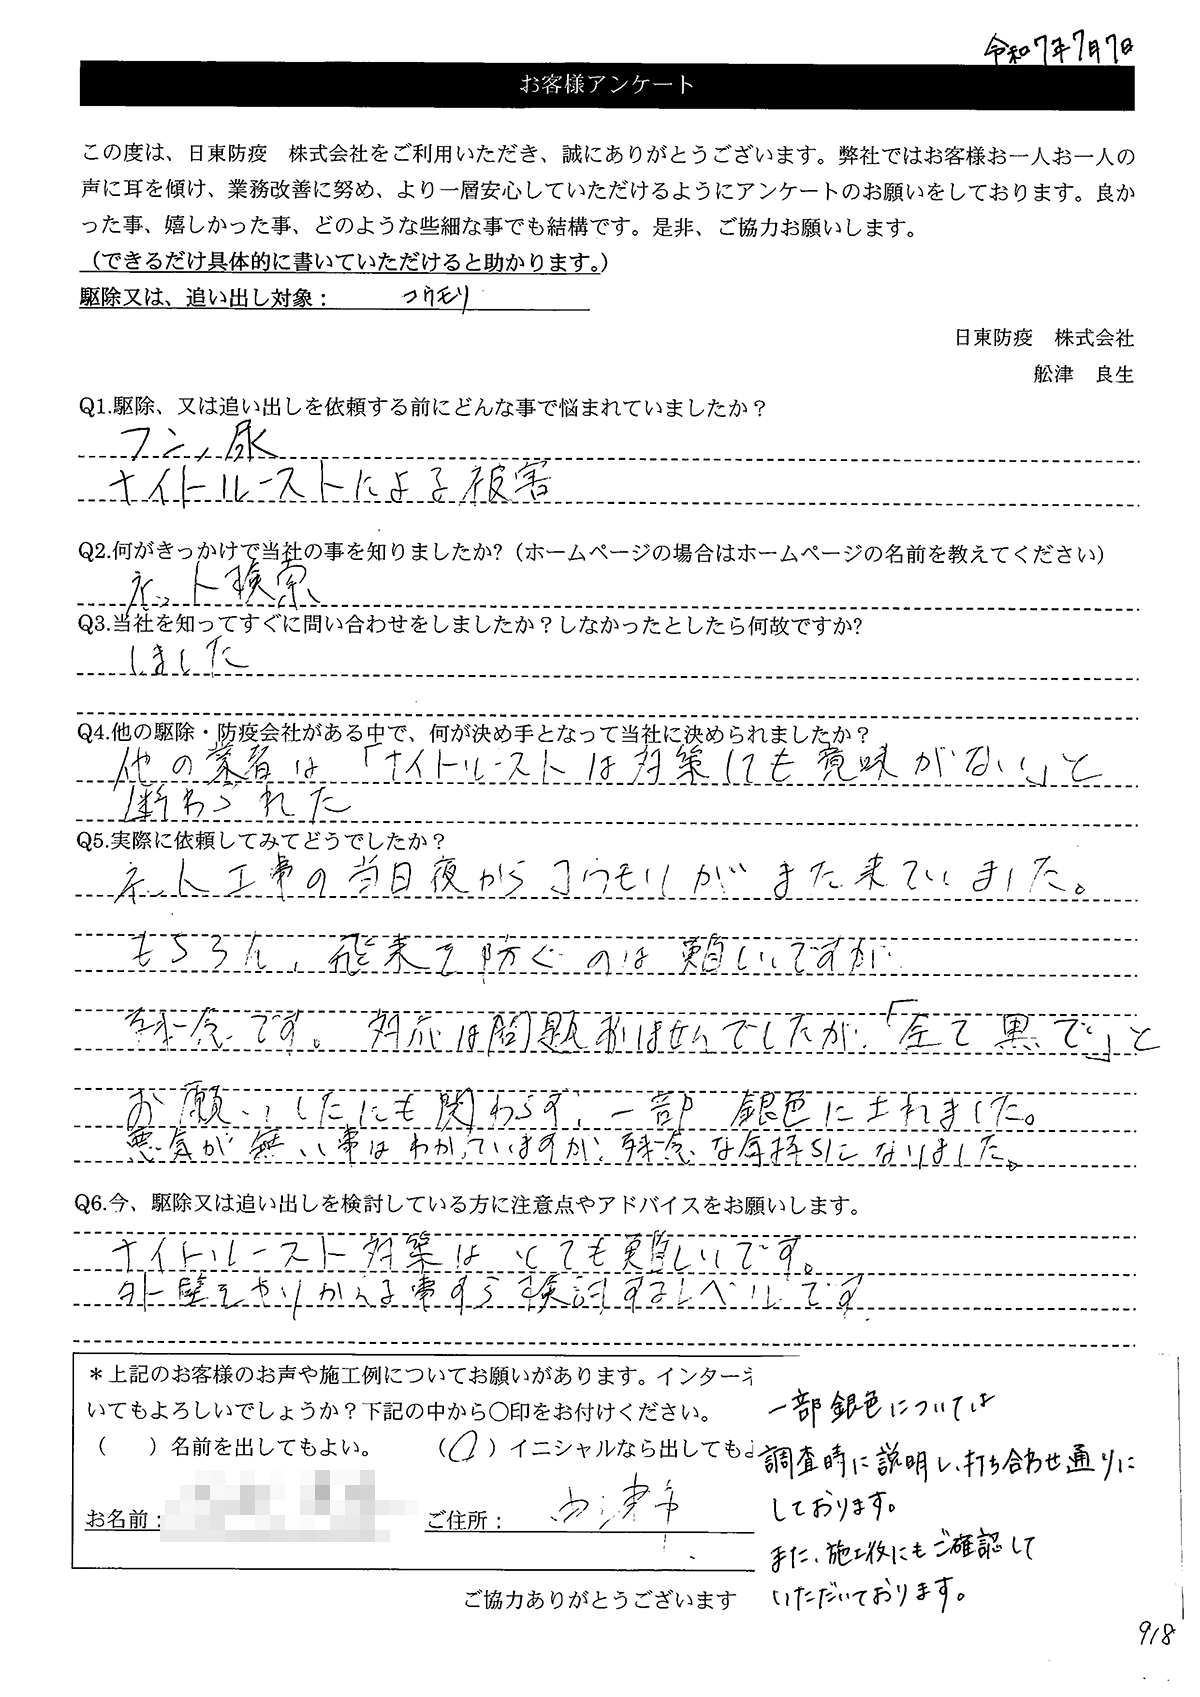 令和7年7月7日
お客様アンケート
この度は、日東防疫　株式会社をご利用いただき、誠にありがとうございます。弊社ではお客様お一人お一人の
声に耳を傾け、業務改善に努め、より一層安心していただけるようにアンケートのお願いをしております。良か
った事、嬉しかった事、どのような些細な事でも結構です。是非、ご協力お願いします。
（できるだけ具体的に書いていただけると助かります。）
駆除又は、追い出し対象： コウモリ
日東防疫　株式会社
舩津　良生
Q1.駆除、又は追い出しを依頼する前にどんな事で悩まれていましたか？
フン、尿
ナイトルーストによる被害
Q2.何がきっかけで当社の事を知りましたか?（ホームページの場合はホームページの名前を教えてください）
ネット検索
Q3.当社を知ってすぐに問い合わせをしましたか？しなかったとしたら何故ですか?
しました
Q4.他の駆除・防疫会社がある中で、何が決め手となって当社に決められましたか？
他の業者は「ナイトルーストは対策しても意味がない」と
断わられた
Q5.実際に依頼してみてどうでしたか？
ネット工事の当日夜からコウモリがまた来ていました。
もちろん、飛来を防ぐのは難しいですが
残念です。対応は問題ありませんでしたが、「全て黒で」と
お願いしたにも関わらず、一部 銀色にされました。
悪気が無い事はわかっていますが、残念な気持ちになりました。
Q6.今、駆除又は追い出しを検討している方に注意点やアドバイスをお願いします。
ナイトルースト対策はとても難しいです。
外壁をやりかえる事すら検討するレベルです
＊上記のお客様のお声や施工例についてお願いがあります。インターネ
いてもよろしいでしょうか？下記の中から〇印をお付けください。
（　　）名前を出してもよい。　（〇）イニシャルなら出してもよ
お名前：　ご住所：
ご協力ありがとうございます
一部銀色については
調査時に説明し、打ち合わせ通りに
しております。
また、施工後にもご確認して
いただいております。
918